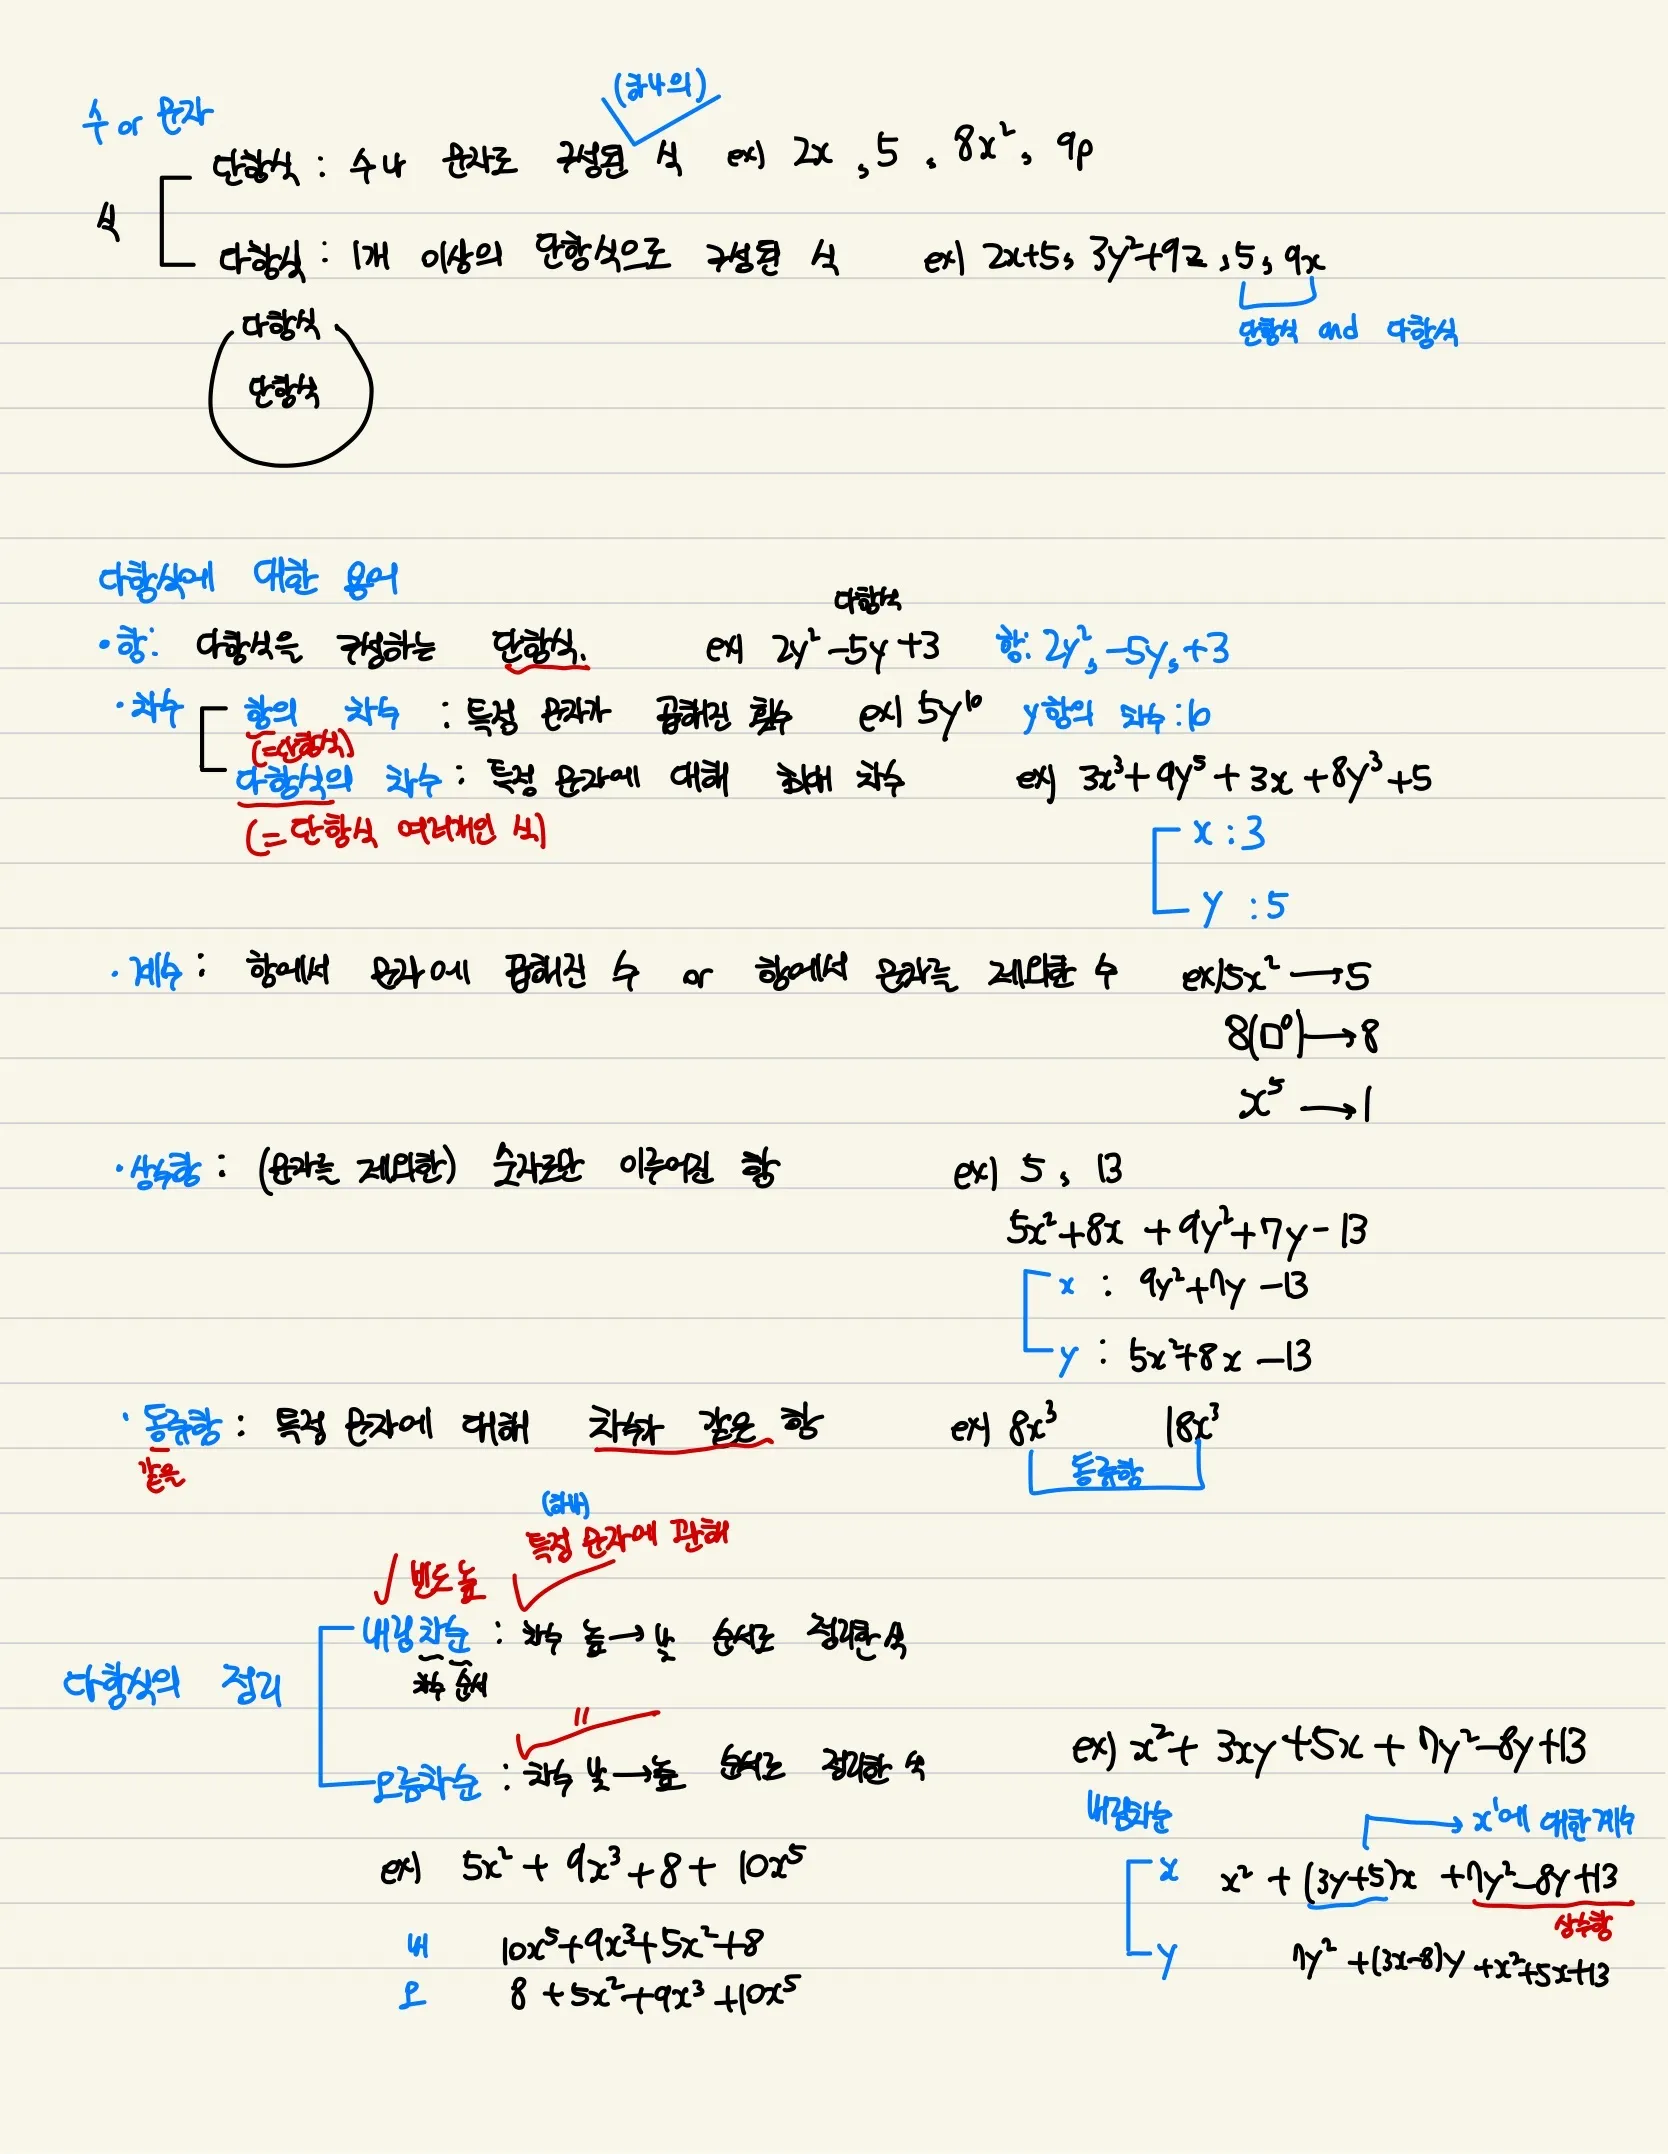 (하나의)
수 or 문자
단항식 : 수나 문자로 구성된 식 ex) 2x , 5 , 8x², 9p
식
다항식 : 1개 이상의 단항식으로 구성된 식 ex) 2x+5, 3y²+9z , 5, 9x
단항식 and 다항식
다항식
단항식
다항식에 대한 용어
다항식
· 항 : 다항식을 구성하는 단항식. ex) 2y² -5y +3 항: 2y², -5y, +3
· 차수 항의 차수 : 특정 문자가 곱해진 횟수 ex) 5y¹⁰ y항의 차수 : 10
(=단항식)
다항식의 차수 : 특정 문자에 대해 최대 차수 ex) 3x³+9y⁵+3x+8y³+5
(= 단항식 여러개인 식)
x : 3
y : 5
· 계수 : 항에서 문자에 곱해진 수 or 항에서 문자를 제외한 수 ex) 5x² → 5
8(□⁰) → 8
x⁵ → 1
· 상수항 : (문자를 제외한) 숫자로만 이루어진 항 ex) 5, 13
5x²+8x +9y²+7y-13
x : 9y²+7y -13
y : 5x²+8x -13
· 동류항 : 특정 문자에 대해 차수가 같은 항 ex) 8x³ 18x³
같은
동류항
(하나)
특정 문자에 관해
✓ 빈도 높
내림차순 : 차수 높 → 낮 순서로 정리한 식
차수 순서
다항식의 정리
〃
오름차순 : 차수 낮 → 높 순서로 정리한 식
ex) x²+ 3xy+5x + 7y²-8y+13
내림차순
→ x¹에 대한 계수
x x² + (3y+5)x +7y²-8y+13
상수항
y 7y² +(3x-8)y +x²+5x+13
ex) 5x² + 9x³ + 8 + 10x⁵
내 10x⁵+9x³+5x²+8
오 8 +5x²+9x³ +10x⁵